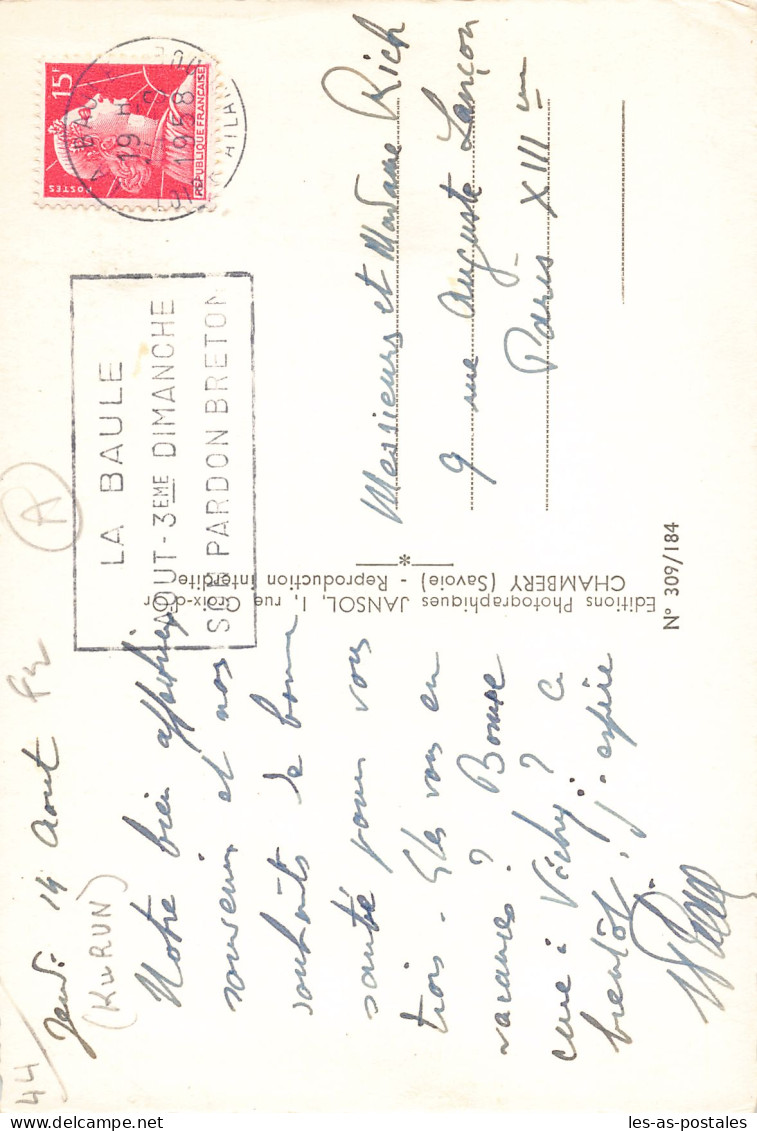 15F
POSTES
REPUBLIQUE FRANÇAISE
19 H
1958
LA BAULE
AOUT-3EME DIMANCHE
SON PARDON BRETON
A
44
Jeudi 14 Aout
(KURUN)
Notre bien affectueux
souvenir et nos
souhaits de bonne
santé pour vous
trois - Etes vous en
vacances ? Bonne
cure à Vichy ? à
bientôt, j'espère
Editions Photographiques JANSOL, 1, rue Croix-d'Or
CHAMBERY (Savoie) - Reproduction interdite
N° 309/184
Messieurs et Madame Rich
9 rue Auguste Lançon
Paris XIII em
les-as-postales.com